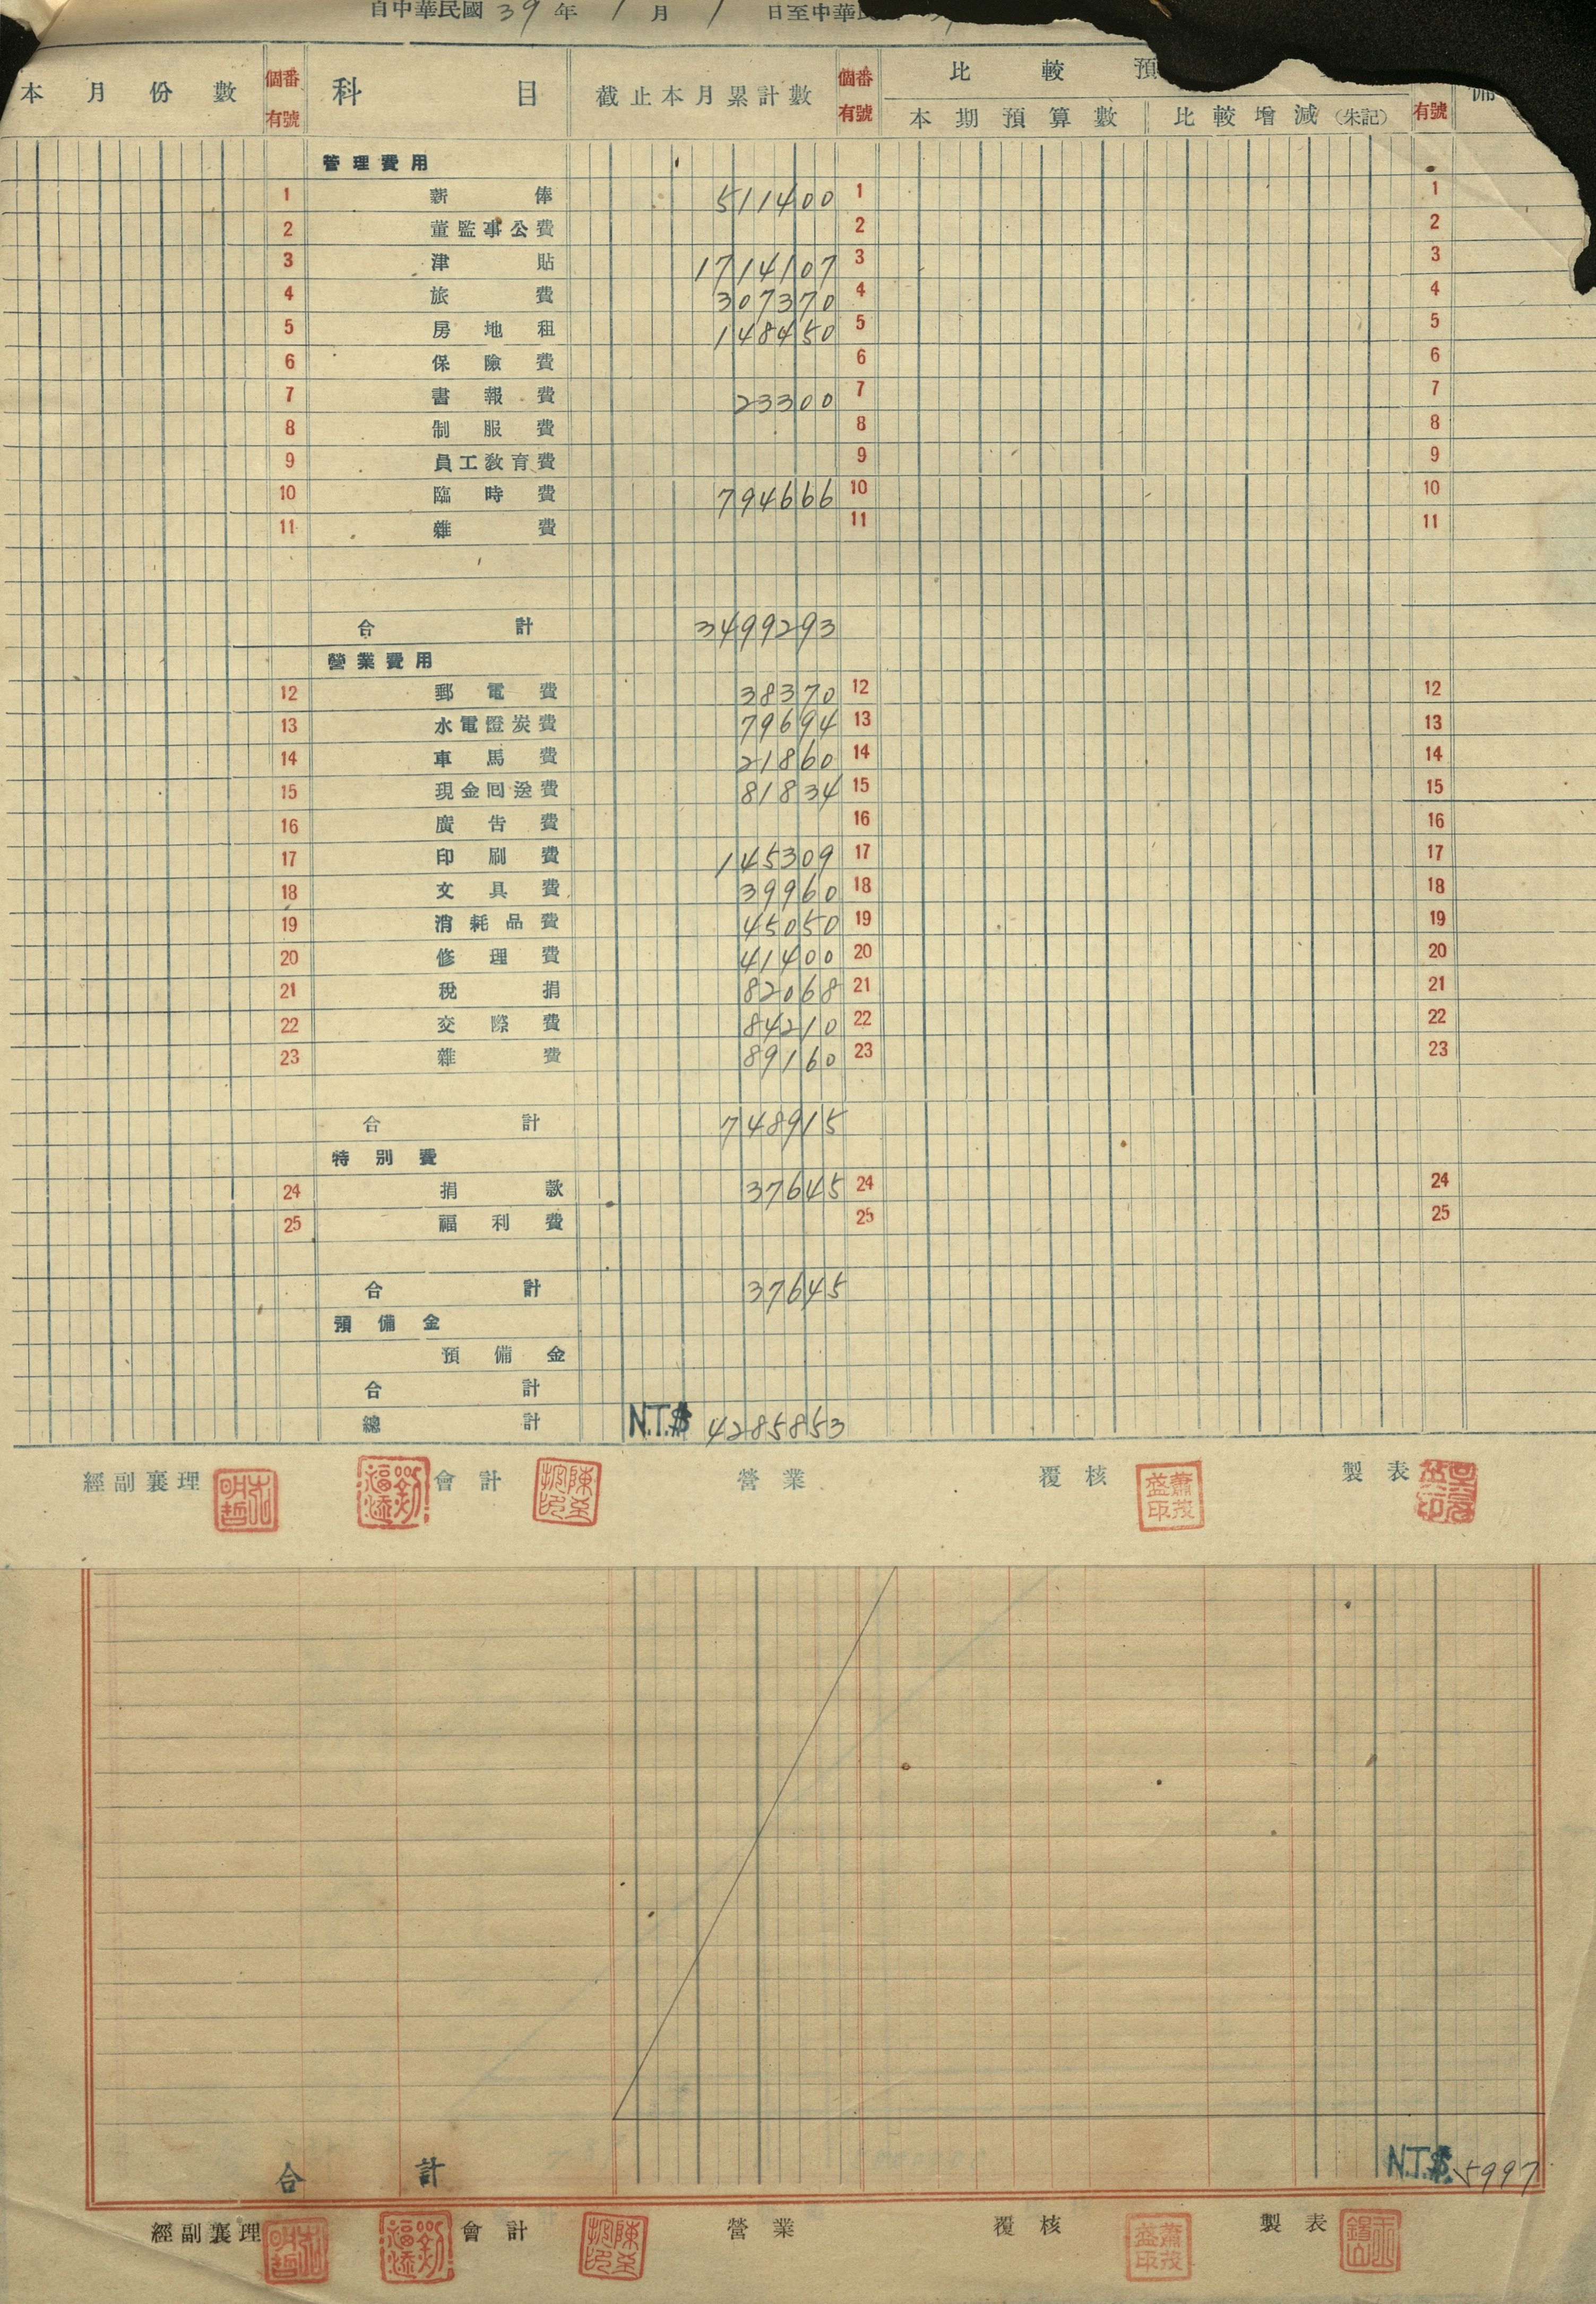 自中華民國 39 年 1 月 1 日至中華民
本月份數 個有 番號 科目 截止本月累計數 個有 番號 比較預
本期預算數 比較增減(朱記) 有號 備
管理費用
1 薪俸 511400 1 1
2 董監事公費 2 2
3 津貼 1714107 3 3
4 旅費 307370 4 4
5 房地租 148450 5 5
6 保險費 6 6
7 書報費 23300 7 7
8 制服費 8 8
9 員工教育費 9 9
10 臨時費 794666 10 10
11 雜費 11 11
合計 3499293
營業費用
12 郵電費 38370 12 12
13 水電燈炭費 79694 13 13
14 車馬費 21860 14 14
15 現金回送費 81834 15 15
16 廣告費 16 16
17 印刷費 145309 17 17
18 文具費 39960 18 18
19 消耗品費 45050 19 19
20 修理費 41400 20 20
21 稅捐 82068 21 21
22 交際費 84210 22 22
23 雜費 89160 23 23
合計 748915
特別費
24 捐款 37645 24 24
25 福利費 25 25
合計 37645
預備金
預備金
合計
總計 N.T.$ 4285853
經副襄理 會計 營業 覆核 蕭茂盛印 製表
合計 N.T.$ 5997
經副襄理 會計 營業 覆核 蕭茂盛印 製表